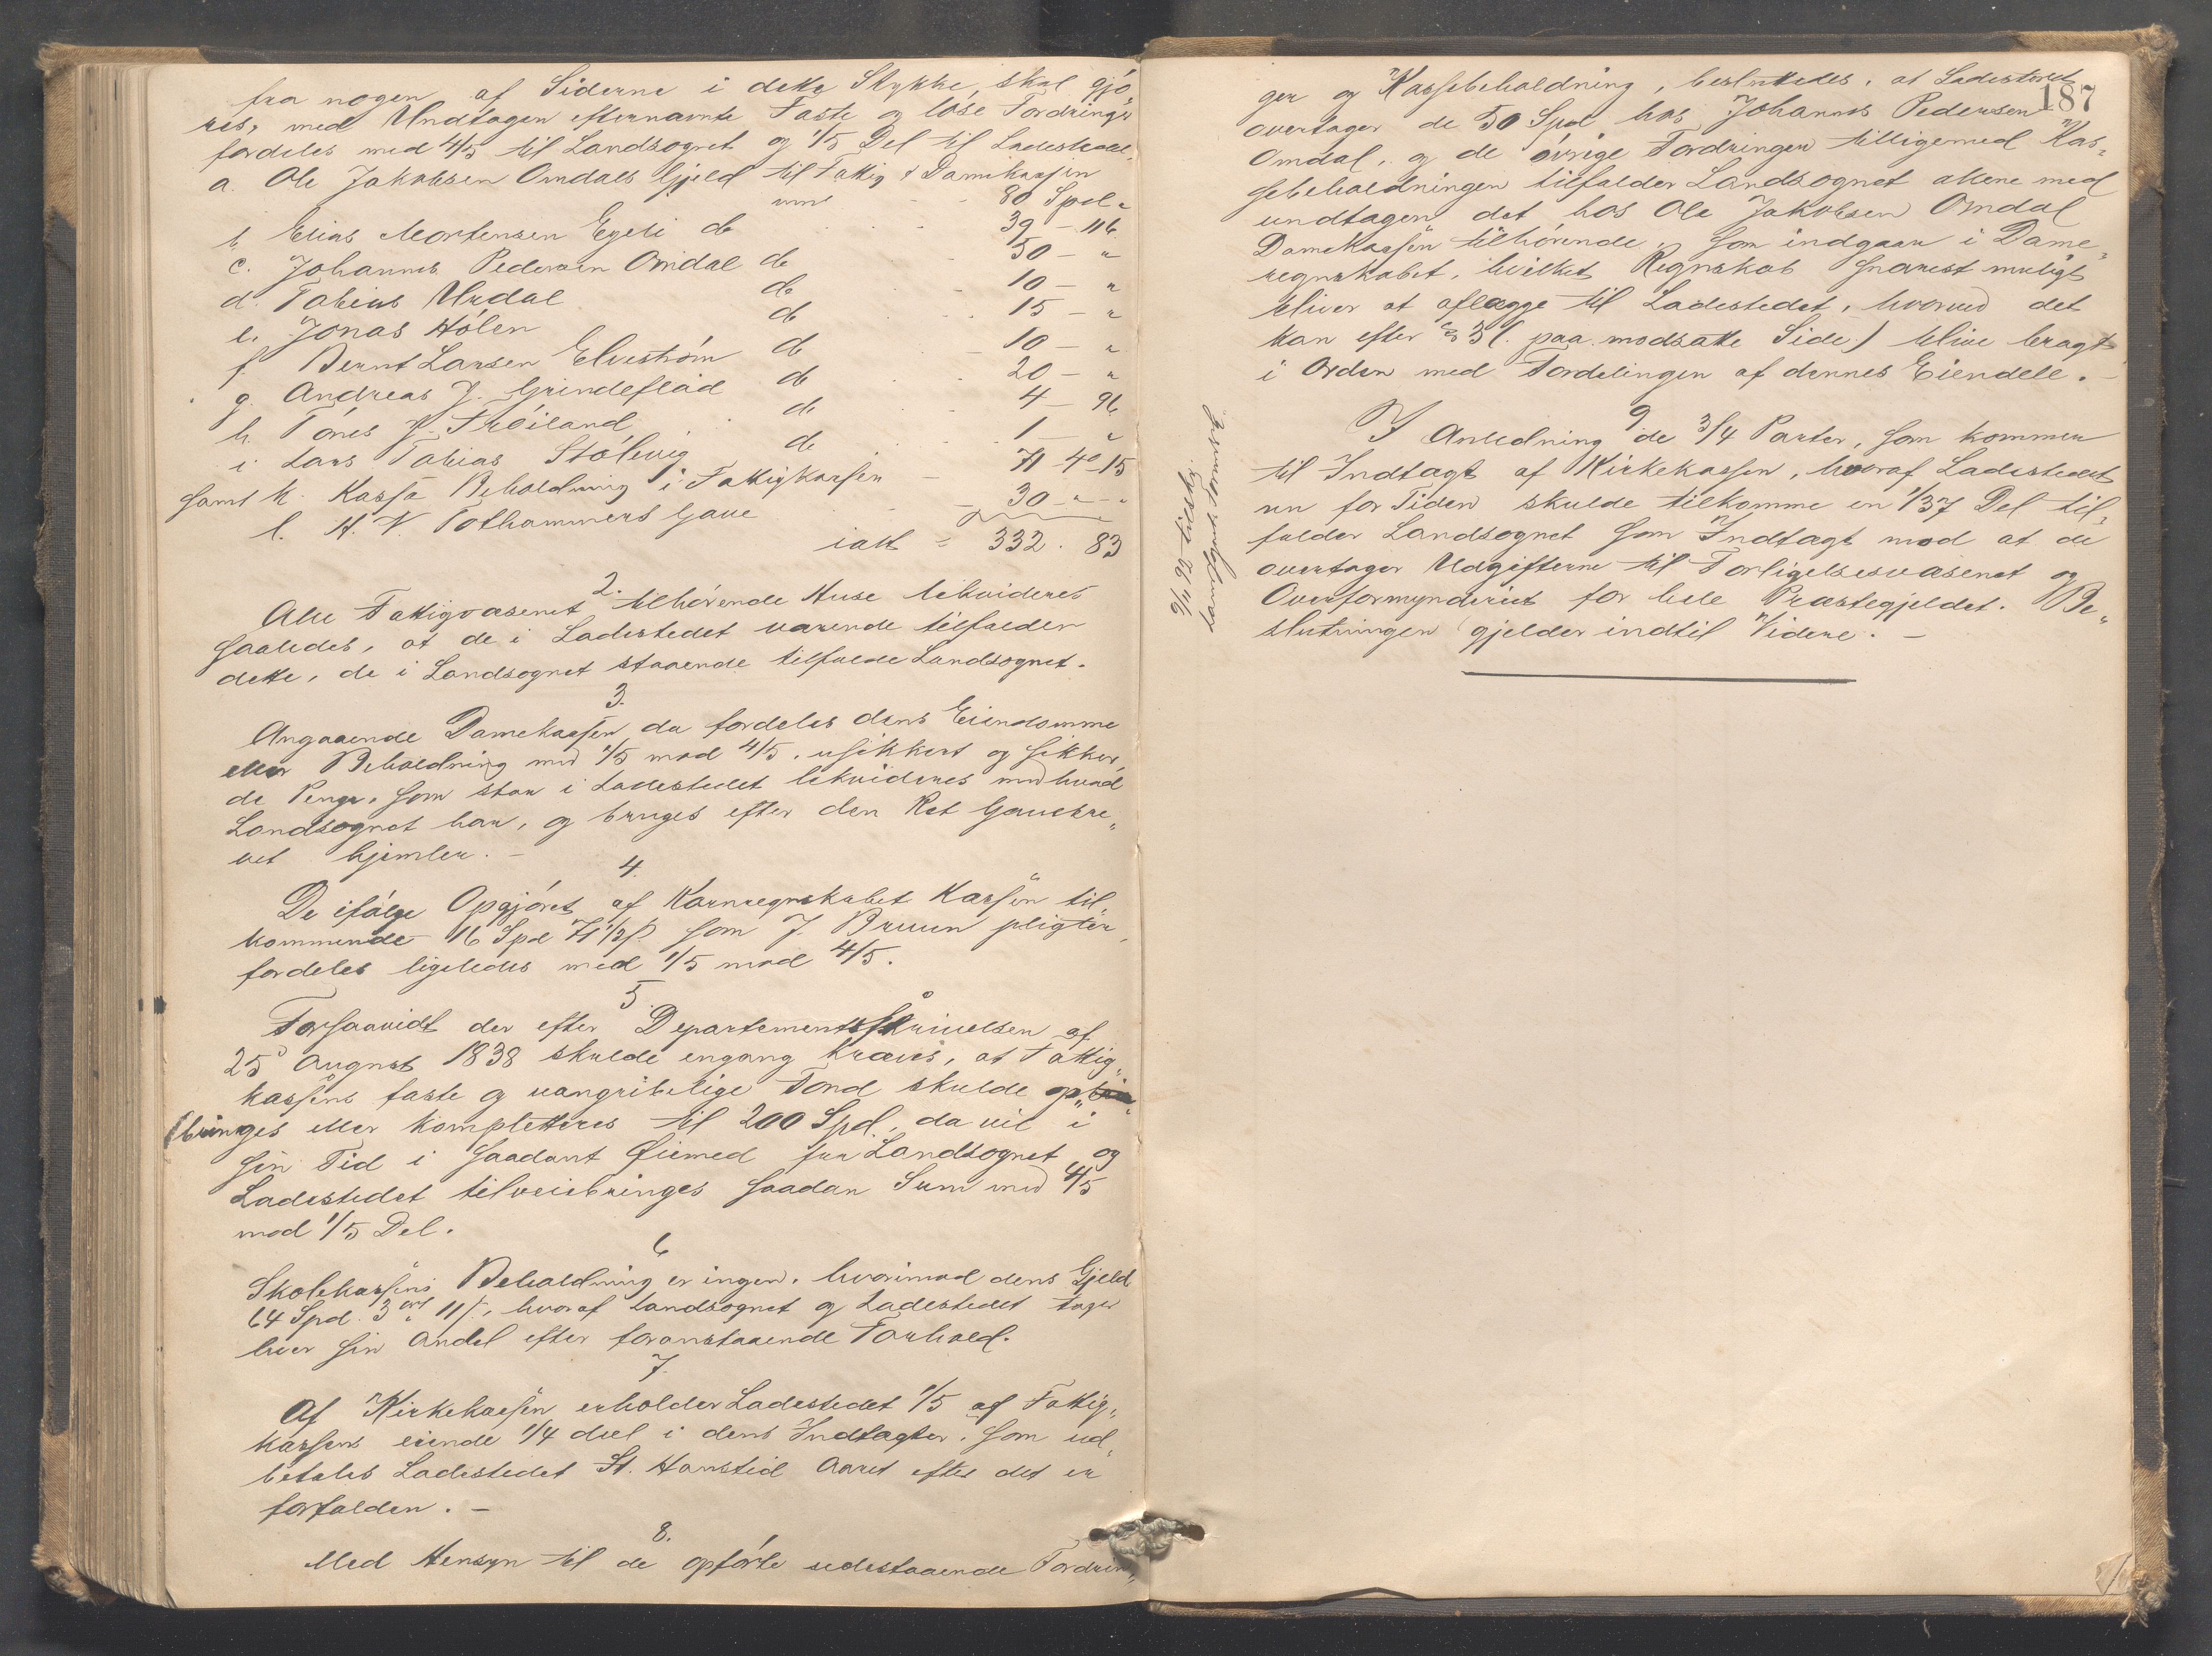 fra nogen af Siderne i dette Stykke, skal gjö„
res, med Undtagen efternævnte Faste og löse Fordringer
fordeles med 4/5 til Landsognet og 1/5 Del til Ladestedet.
a. Ole Jakobsen Omdals Gjeld til Fattig & Damekassen
80 Spd "
b Elias Mortensen Egeli do 39 – 116
c. Johannes Pedersen Omdal do 50 – "
d. Tobias Urdal do 10 – "
e. Jonas Hölen do 15 – "
f. Bernt Larsen Elveström do 10 – "
g. Andreas J. Grindeflad do 20 – "
h. Tönes J. Tröiland do 4 – 96
i Lars Tobias Stölevig do 1 – "
samt k. Kassa Beholdning i Fattigkassen – 71 – 4 o 15
l. H. V. Tothammers Gave 30 – " – "
ialt = 332 . 83
2.
Alle Fattigvæsenet tilhörende Huse likvideres
saaledes, at de i Ladestedet værende tilfalder
dette, de i Landsognet staaende tilfalde Landsognet.
3.
Angaaende Damekassen da fordeles dens Eiendomme
eller Beholdning med 1/5 mod 4/5. usikkert og sikker„
de Penge, som staar i Ladestedet likvideres med hvad
Landsognet har, og bruges efter den Ret Gavebre„
vet hjemler. –
4.
De ifölge Opgjöret af Kornregnskabet Kassen til„
kommende 16 Spd 71 1/2 ß som J. Bruun pligter,
fordeles ligeledes med 1/5 mod 4/5.
5
Forsaavidt der efter Departementsskrivelsen af
25 August 1838 skulde engang kræves, at Fattig„
kassens faste og uangribelige Fond skulde op„
bringes eller kompletteres til 200 Spd, da vil i
sin Tid i saadant Øiemed fra Landsognet og
Ladestedet tilveiebringes saadan Sum med 4/5
mod 1/5 Del.
6
Skolekassens Beholdning er ingen, hvorimod dens Gjeld
64 Spd. 3 ort 11 ß, hvoraf Landsognet og Ladestedet tager
hver sin Andel efter foranstaaende Forhold.
7.
Af Kirkekassen erholder Ladestedet 1/5 af Fattig„
kassens eiende 1/4 deel i dens Indtægter, som ud„
betales Ladestedet St. Hanstid Aaret efter det er
forfalden. –
8.
Med Hensyn til de opförte udestaaende Fordrin„
187
ger og Kassebeholdning, besluttedes, at Ladestedet
overtager de 50 Spd hos Johannes Pedersen
Omdal, og de övrige Fordringer tilligemed Kas„
sebeholdningen tilfalder Landsognet alene med
undtagen det hos Ole Jakobsen Omdal
Damekassen tilhörende, som indgaar i Dame„
regnskabet, hvilket Regnskab snarest muligt
bliver at aflægge til Ladestedet, hvorved det
kan efter § 3 (paa modsatte Side) blive bragt
i Orden med Fordelingen af dennes Eiendele. –
9
I Anledning de 3/4 Parter, som kommer
til Indtægt af Kirkekassen, hvoraf Ladestedet
nu for Tiden skulde tilkomme en 1/37 Del til„
falder Landsognet som Indtægt mod at de
overtager Udgifterne til Forligelsesvæsenet og
Overformynderiet for hele Præstegjeldet. Be„
slutningen gjelder indtil Videre. –